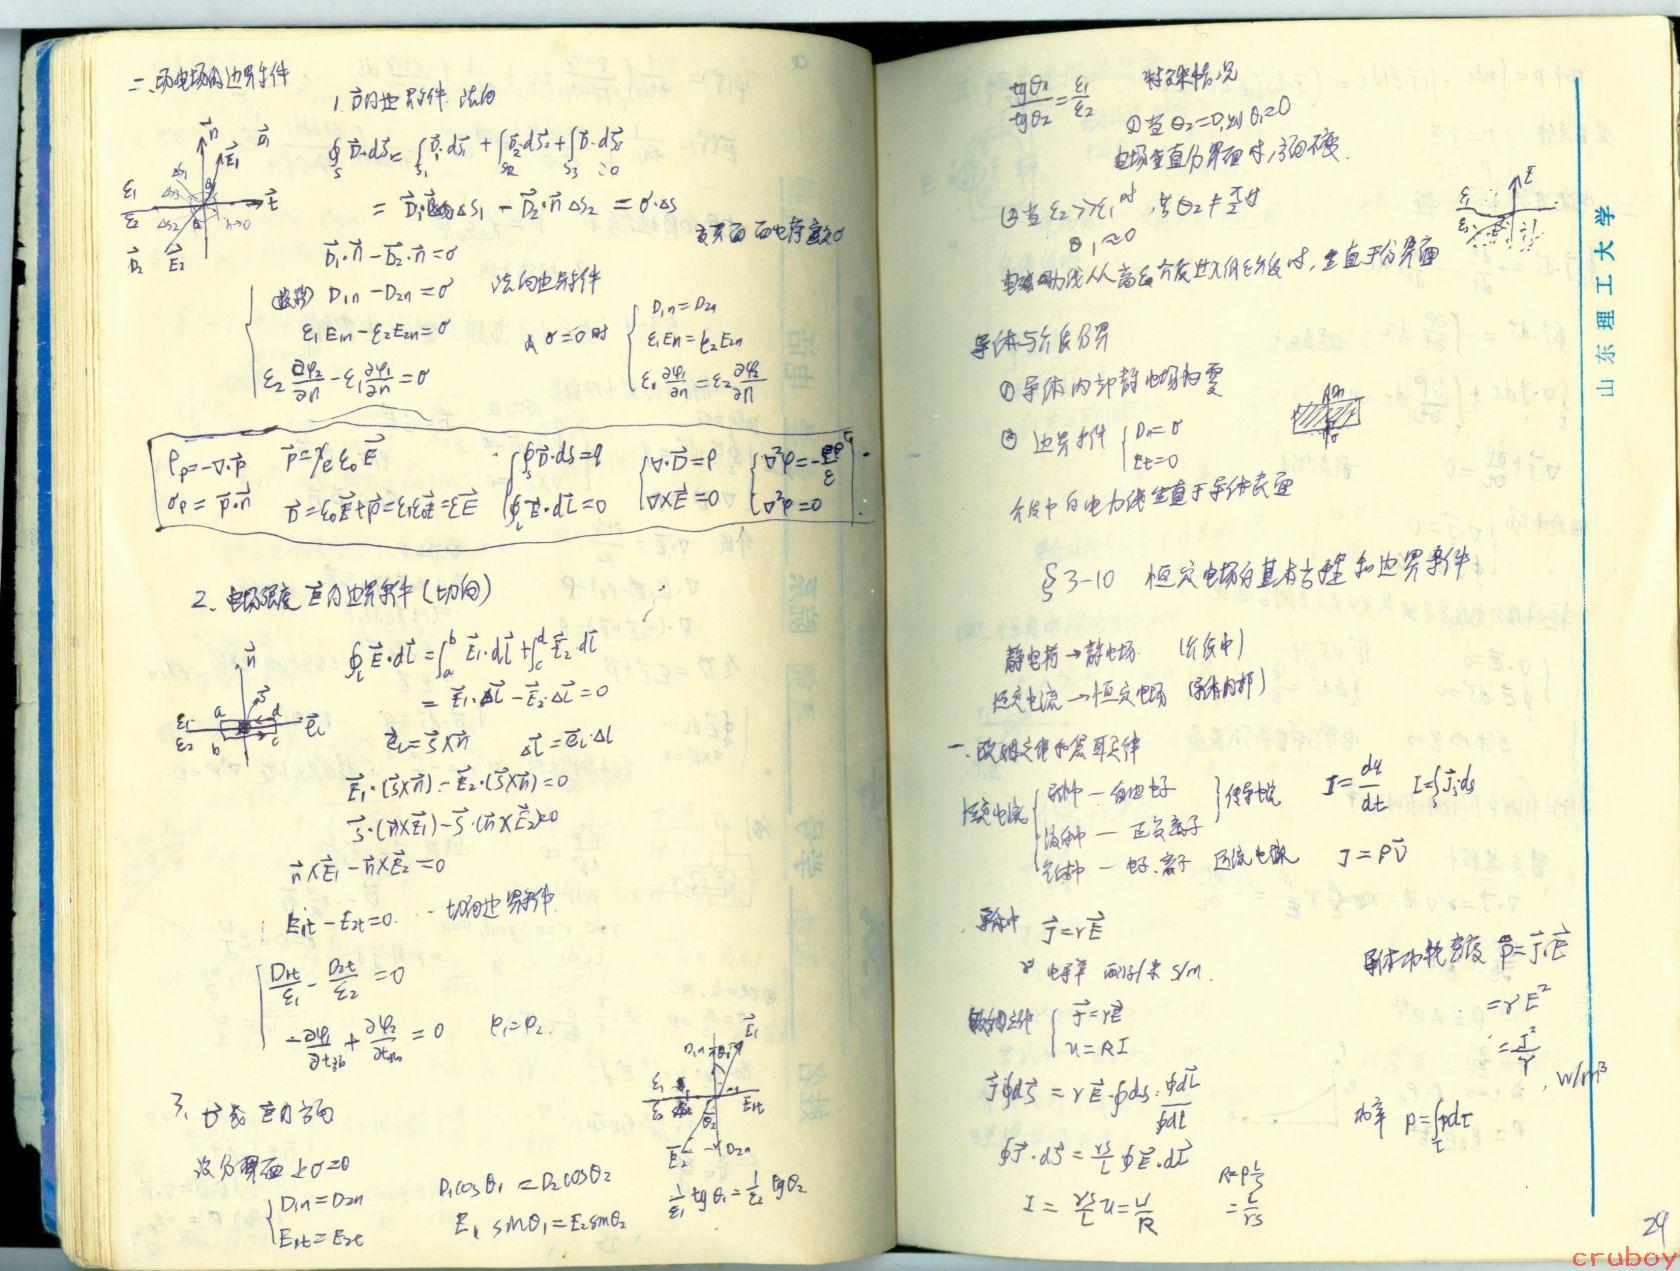 二、静电场的边界条件
1. D⃗的边界条件 法向
∮_S D⃗·dS⃗ = ∫_S1 D⃗₁·dS⃗₁ + ∫_S2 D⃗₂·dS⃗₂ + ∫_S3 D⃗·dS⃗
= D⃗₁·n⃗ΔS₁ − D⃗₂·n⃗ΔS₂ = σ·ΔS
D⃗₁·n⃗ − D⃗₂·n⃗ = σ
D₁n − D₂n = σ 法向边界条件
ε₁E₁n − ε₂E₂n = σ
ε₂ ∂φ₂/∂n − ε₁ ∂φ₁/∂n = σ
σ=0时
D₁n = D₂n
ε₁E₁n = ε₂E₂n
ε₁ ∂φ₁/∂n = ε₂ ∂φ₂/∂n
ρp = −∇·P⃗ P⃗ = χe ε₀ E⃗ ∮_S D⃗·dS = q ∇·D⃗ = ρ ∇²φ = −ρ/ε
σp = P⃗·n⃗ D⃗ = ε₀E⃗ + P⃗ = εrε₀E⃗ = εE⃗ ∮_L E⃗·dL⃗ = 0 ∇×E⃗ = 0 ∇²φ = 0
2. 电场强度 E⃗的边界条件 (切向)
∮_L E⃗·dL⃗ = ∫_a^b E⃗₁·dL⃗ + ∫_c^d E⃗₂·dL⃗
= E⃗₁·ΔL⃗ − E⃗₂·ΔL⃗ = 0
e⃗L = S⃗×n⃗ ΔL⃗ = e⃗L·Δl
E⃗₁·(S⃗×n⃗) − E⃗₂·(S⃗×n⃗) = 0
S⃗·(n⃗×E⃗₁) − S⃗·(n⃗×E⃗₂) = 0
n⃗×E⃗₁ − n⃗×E⃗₂ = 0
E₁t − E₂t = 0 ... 切向边界条件
D₁t/ε₁ − D₂t/ε₂ = 0
−∂φ₁/∂t + ∂φ₂/∂t = 0 φ₁=φ₂
3. D⃗或E⃗的方向
设分界面上σ=0
D₁n = D₂n D₁cosθ₁ = D₂cosθ₂
E₁t = E₂t E₁sinθ₁ = E₂sinθ₂
1/ε₁ tgθ₁ = 1/ε₂ tgθ₂
tgθ₁/tgθ₂ = ε₁/ε₂ 特殊情况
①当θ₂=0,则θ₁=0
电场垂直分界面时,方向不变.
②当ε₂>>ε₁时,若θ₂≠π/2时
θ₁≈0
电力线从高ε介质进入低ε介质时,垂直于分界面
导体与介质分界
①导体内部静电场为零
②边界条件 Dn=σ
Et=0
介质中的电力线垂直于导体表面
§3-10 恒定电场的基本方程和边界条件
静电荷→静电场 (介质中)
恒定电流→恒定电场 (导体内部)
一.欧姆定律和焦耳定律
恒定电流
导体中—自由电子 传导电流 I=dq/dt I=∫_S J⃗·dS
液体中—正负离子
气体中—电子.离子 运流电流 J=ρv⃗
导体中 J⃗=γE⃗
γ 电导率 西门子/米 S/m.
导体功耗密度 p=J⃗·E⃗
=γE²
=J²/γ
W/m³
欧姆定律 J⃗=γE⃗
u=RI
J⃗∮dS⃗ = γE⃗·∮dS·∮dL⃗/∮dL
功率 P=∫_τ pdτ
∮J⃗·dS⃗ = γS/L ∮E⃗·dL⃗
I = γS/L u = u/R
R=ρL/S
=L/γS
山东理工大学
29
cruboy